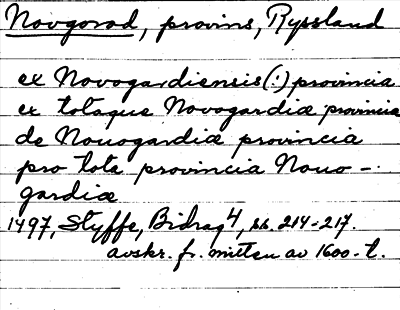 Novgorod, provins, Ryssland
ex Novogardiensis(!) provincia
ex totaque Novogardiæ provincia
de Nouogardiæ provincia
pro tota provincia Nouo-
gardiæ
1497, Styffe, Bidrag 4, ss. 214-217.
avskr. fr. mitten av 1600-t.